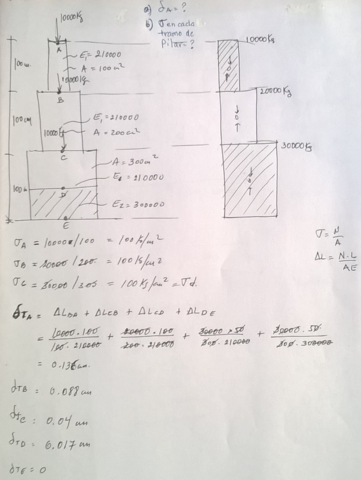 a) δA = ?
b) σ en cada
tramo de
Pilar = ?
10000 Kg
A
E₁ = 210000
A = 100 cm²
100 cm
10000 Kg
B
20000 Kg
E₁ = 210000
A = 200 cm²
100 cm
10000 Kg
C
30000 Kg
A = 300 m²
E₁ = 210000
100 cm
D
E₂ = 300000
E
σA = 10000/100 = 100 K/cm²
σB = 20000/200 = 100 K/cm²
σC = 30000/300 = 100 Kg/cm² = σd.
σ = N/A
ΔL = N.L/AE
δTA = ΔLBA + ΔLCB + ΔLCD + ΔLDE
= 10000.100/100.210000 + 20000.100/200.210000 + 30000 × 50/300.210000 + 30000.50/300.300000
= 0.136 cm.
δTB = 0.088 cm
δTC = 0.04 cm
δTD = 0.017 cm
δTE = 0